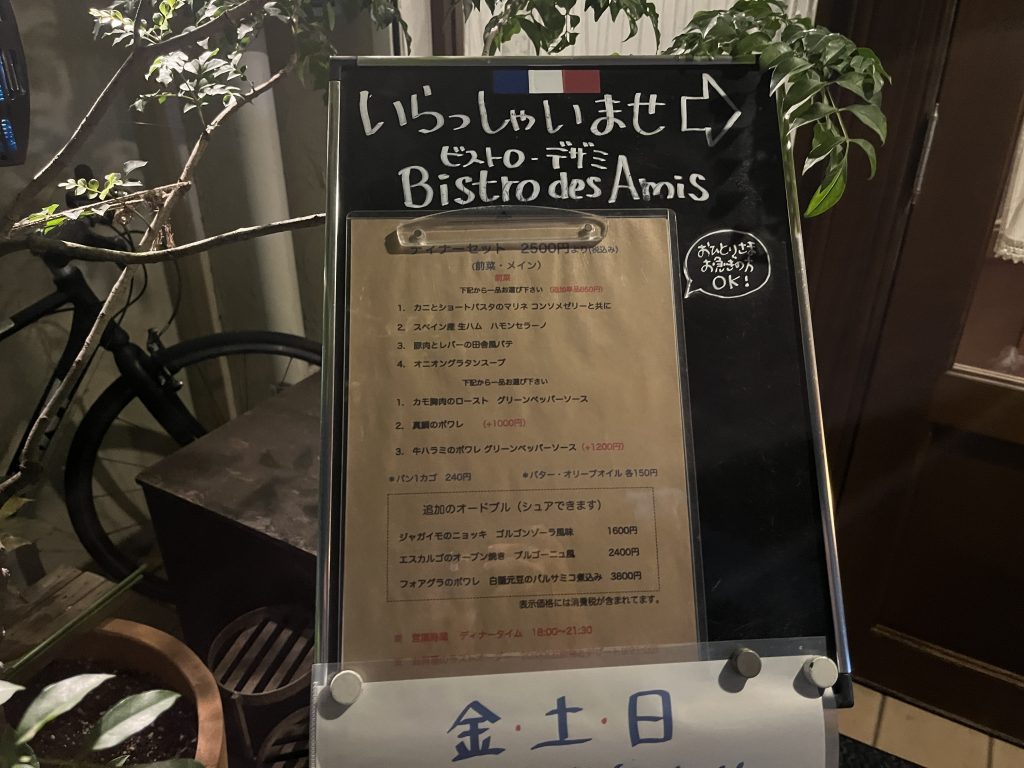 いらっしゃいませ
ビストロ-デザミ
Bistro des Amis
おひとりさま
お急ぎの方
OK!
ディナーセット 2500円より(税込み)
(前菜・メイン)
前菜
下記から一品お選び下さい (追加単品850円)
1. カニとショートパスタのマリネ コンソメゼリーと共に
2. スペイン産 生ハム ハモンセラーノ
3. 豚肉とレバーの田舎風パテ
4. オニオングラタンスープ
下記から一品お選び下さい
1. カモ胸肉のロースト グリーンペッパーソース
2. 真鯛のポワレ (+1000円)
3. 牛ハラミのポワレ グリーンペッパーソース (+1200円)
*パン1カゴ 240円 *バター・オリーブオイル 各150円
追加のオードブル (シェアできます)
ジャガイモのニョッキ ゴルゴンゾーラ風味 1600円
エスカルゴのオーブン焼き ブルゴーニュ風 2400円
フォアグラのポワレ 白隠元豆のバルサミコ煮込み 3800円
表示価格には消費税が含まれてます。
※ 営業時間 ディナータイム 18:00〜21:30
金・土・日